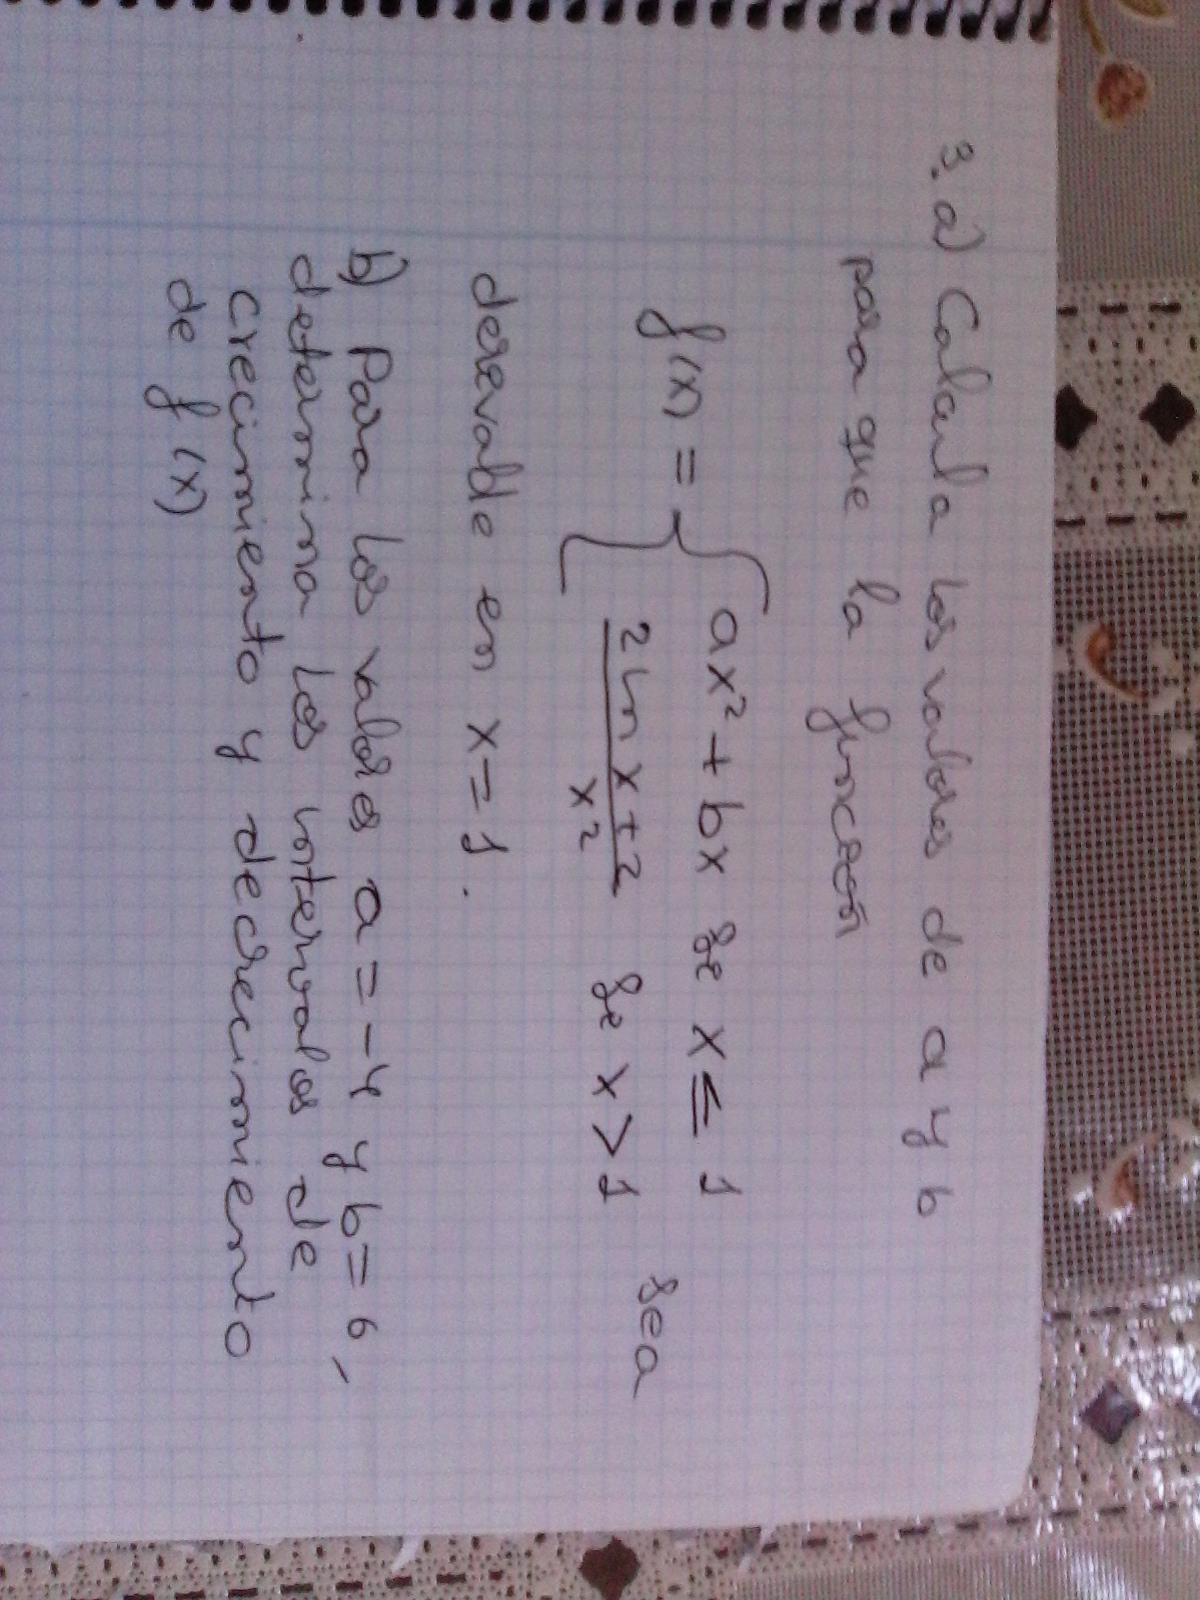 3. a) Calcula los valores de a y b
para que la función
f(x) = { ax² + bx se x ≤ 1
2 ln x + 2 / x² se x > 1 sea
derevable en x = 1.
b) Para los valores a = -4 y b = 6,
determina los intervalos de
crecimiento y decrecimiento
de f(x)